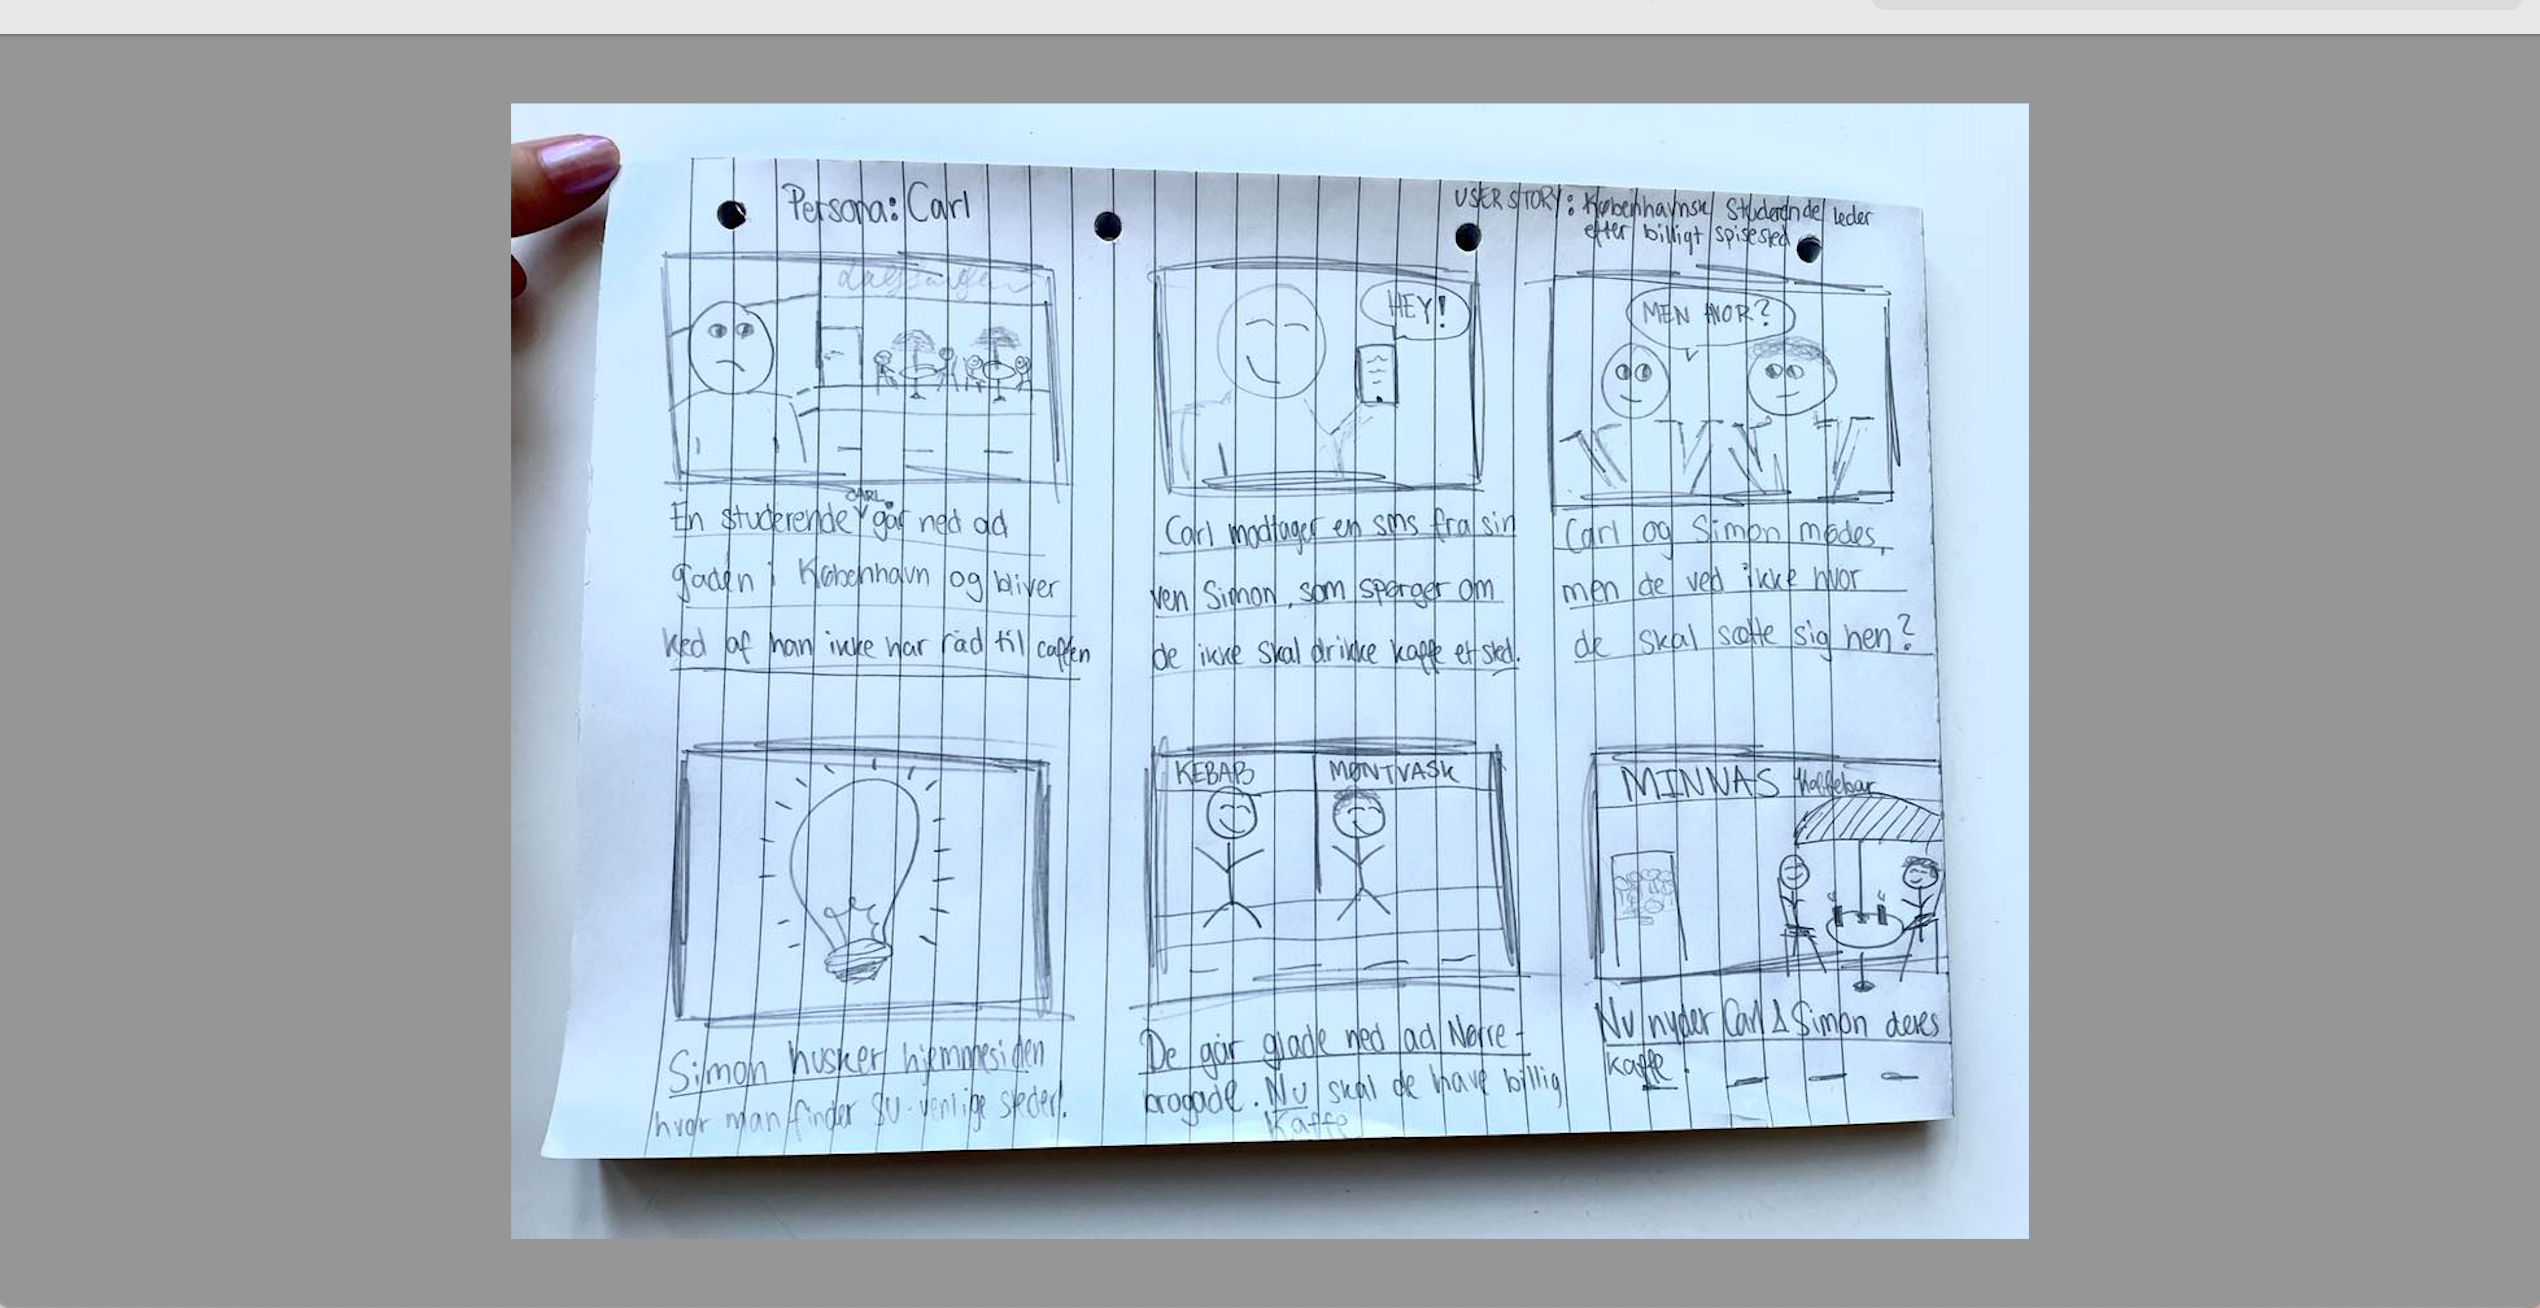 Persona: Carl
USER STORY: Københavnsk Studerende leder
efter billigt spisested
HEY!
MEN HVOR?
CARL
En studerende går ned ad
gaden i København og bliver
ked af han ikke har råd til caffen
Carl modtager en sms fra sin
ven Simon, som spørger om
de ikke skal drikke kaffe et sted.
Carl og Simon mødes,
men de ved ikke hvor
de skal sætte sig hen?
KEBAB
MØNTVASK
MINNAS Kaffebar
Simon husker hjemmesiden
hvor man finder SU-venlige steder!
De går glade ned ad Nørre-
brogade. Nu skal de have billig
Kaffe
Nu nyder Carl & Simon deres
kaffe.